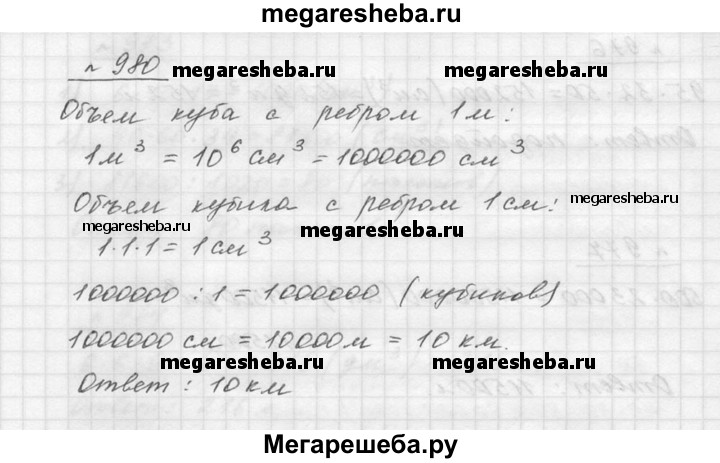 megaresheba.ru
№ 980
megaresheba.ru megaresheba.ru
Объем куба с ребром 1 м:
1 м³ = 10⁶ см³ = 1000000 см³
Объем кубика с ребром 1 см:
megaresheba.ru
megaresheba.ru megaresheba.ru
1·1·1 = 1 см³
1000000 : 1 = 1000000 (кубиков)
1000000 см = 10000 м = 10 км.
megaresheba.ru megaresheba.ru
Ответ: 10 км
Мегарешеба.ру